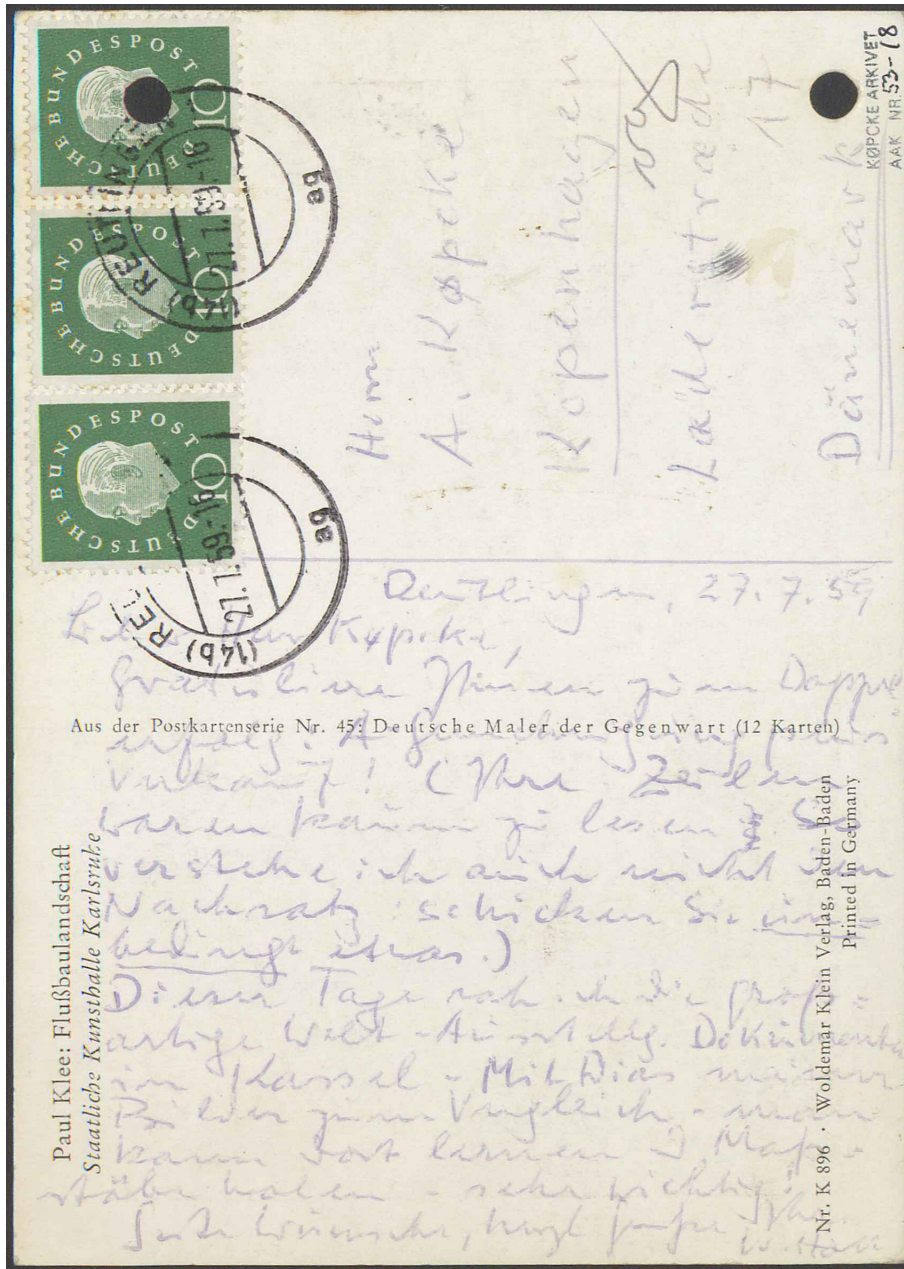 DEUTSCHE BUNDESPOST 10
DEUTSCHE BUNDESPOST 10
DEUTSCHE BUNDESPOST 10
(14b) REUTLINGEN
27.7.59.-16
ag
(14b) REU
27.7.59.-16
ag
KØPCKE ARKIVET
AAK NR. 53-18
Herrn
A. Køpcke
Kopenhagen
17
Dänemark
Reutlingen, 27.7.59
Lieber Herr Køpcke,
Gratuliere Ihnen zum Doppel
erfolg:
Verkauf! (Ihre Zeilen
waren kaum zu lesen. So
verstehe ich auch nicht den
Nachsatz: schicken Sie un-
bedingt etwas.)
Dieser Tage sah ich die groß-
artige Welt-Ausstellg. Dokumenta
in Kassel - Mit Dias meiner
Bilder zum Vergleich - man
kann dort lernen u. Maß-
stäbe holen - sehr wichtig!
Gute Wünsche, herzl. Grüße Ihr
Aus der Postkartenserie Nr. 45: Deutsche Maler der Gegenwart (12 Karten)
Paul Klee: Flußbaulandschaft
Staatliche Kunsthalle Karlsruhe
Nr. K 896 · Woldemar Klein Verlag, Baden-Baden
Printed in Germany